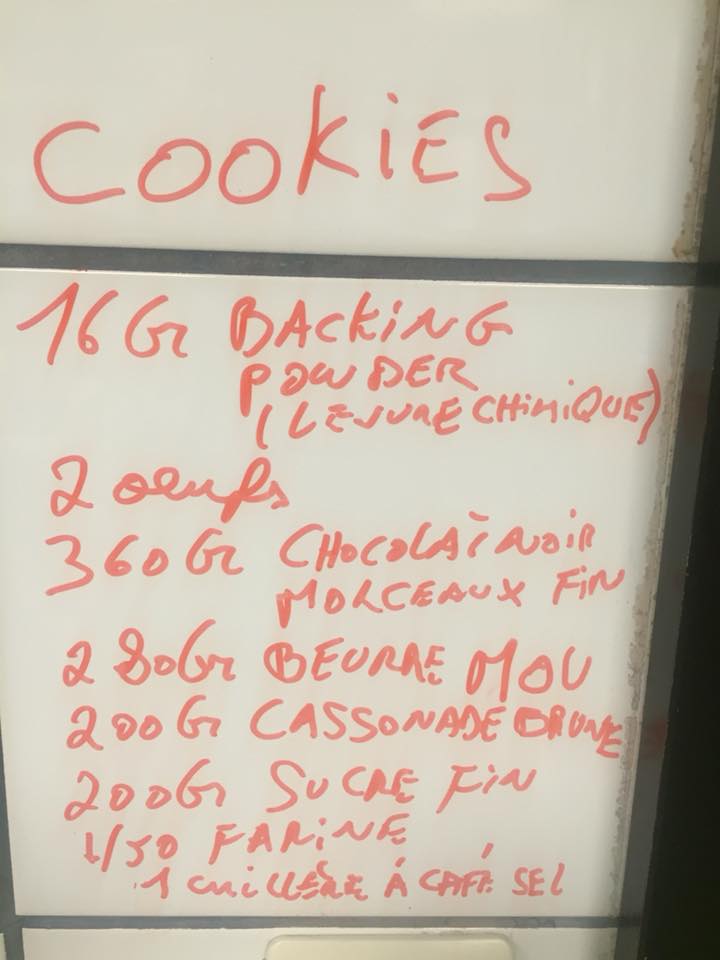 COOKiES
16Gr BACKiNG
POWDER
(LEVURE CHiMiQUE)
2 oeufs
360Gr CHOCOLAT NOiR
MORCEAUX FiN
280Gr BEURRE MOU
200Gr CASSONADE BRUNE
200Gr SUCRE FiN
FARiNE
1 CUiLLÈRE À CAFÉ SEL